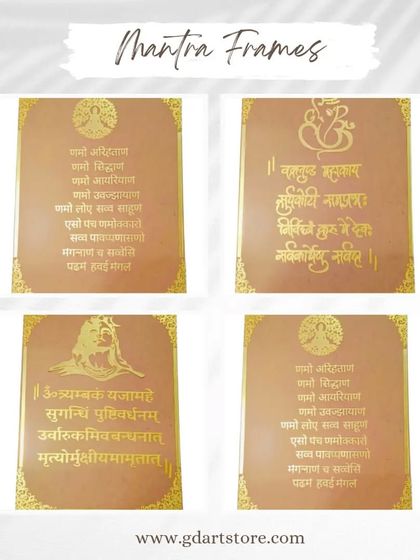 Mantra Frames
णमो अरिहताण
णमो सिद्धाण
णमो आयरियाण
णमो उवज्झायाण
णमो लोए सव्व साहूण
एसो पंच णमोक्कारो
सव्व पावप्पणासणो
मंगलाणं च सव्वेसि
पढम हवई मंगल
|| वक्रतुण्ड महाकाय
सुर्यकोटी समप्रभः
निर्विघ्नं कुरु मे देवः
सर्वकार्येषु सर्वदा ||
|| ॐ त्र्यम्बकं यजामहे
सुगन्धिं पुष्टिवर्धनम्
उर्वारुकमिव बन्धनात्
मृत्योर्मुक्षीयमामृतात् ||
णमो अरिहताण
णमो सिद्धाण
णमो आयरियाण
णमो उवज्झायाण
णमो लोए सव्व साहूण
एसो पंच णमोक्कारो
सव्व पावप्पणासणो
मंगलाणं च सव्वेसि
पढम हवई मंगल
www.gdartstore.com